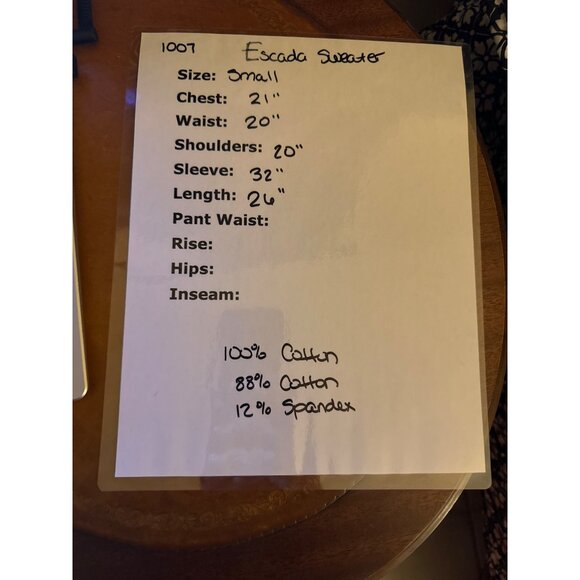 1007 Escada Sweater
Size: Small
Chest: 21"
Waist: 20"
Shoulders: 20"
Sleeve: 32"
Length: 26"
Pant Waist:
Rise:
Hips:
Inseam:
100% Cotton
88% Cotton
12% Spandex